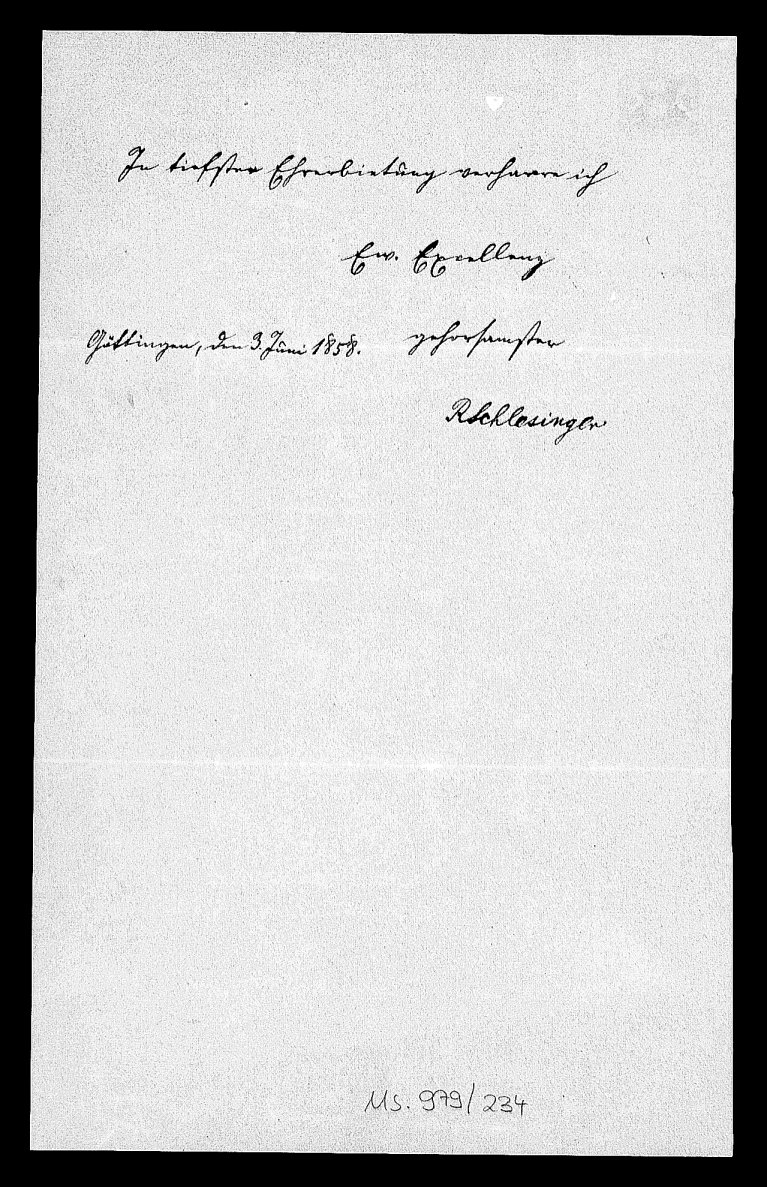 In tiefster Ehrerbietung verharre ich
Ew. Excellenz
gehorsamster
Göttingen, den 3. Juni 1858.
RSchlesinger
Ms. 979/234